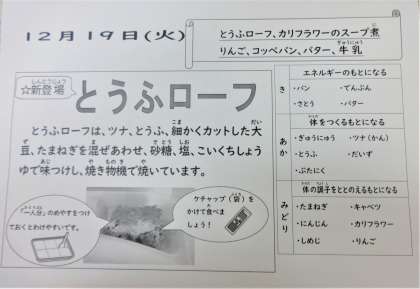 12月19日(火)
とうふローフ、カリフラワーのスープ煮
りんご、コッペパン、バター、牛乳
☆新登場
とうふローフ
とうふローフは、ツナ、とうふ、細かくカットした大
豆、たまねぎを混ぜあわせ、砂糖、塩、こいくちしょう
ゆで味つけし、焼き物機で焼いています。
「一人分」のめやすをつけ
ておくとわけやすいです。
ケチャップ(袋)を
かけて食べま
しょう!
き
エネルギーのもとになる
・パン ・でんぷん
・さとう ・バター
あか
体をつくるもとになる
・ぎゅうにゅう ・ツナ(かん)
・とうふ ・だいず
・ぶたにく
みどり
体の調子をととのえるもとになる
・たまねぎ ・キャベツ
・にんじん ・カリフラワー
・しめじ ・りんご